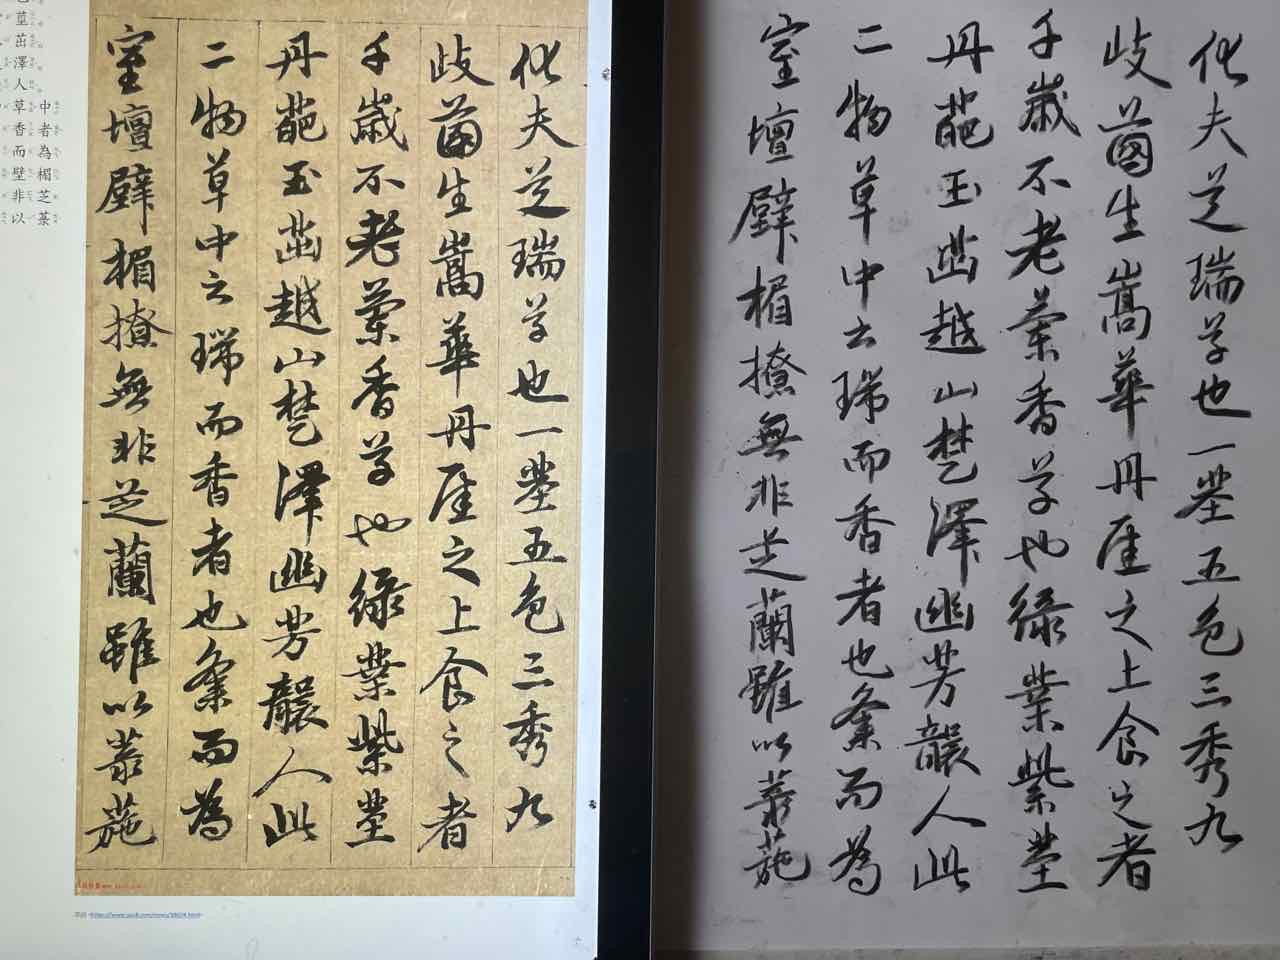 中者為楣芝菉
莖茁澤人草香而壁非以
化夫芝瑞草也一莖五色三秀九
歧菌生嵩華丹厓之上食之者
千歲不老蘭香草也綠葉紫莖
丹葩玉茁越山楚澤幽芳襲人此
二物草中之瑞而香者也奚而為
室壇壁楣橑無非芝蘭雖以菉葹
化夫芝瑞草也一莖五色三秀九
歧菌生嵩華丹厓之上食之者
千歲不老蘭香草也綠葉紫莖
丹葩玉茁越山楚澤幽芳襲人此
二物草中之瑞而香者也奚而為
室壇壁楣橑無非芝蘭雖以菉葹